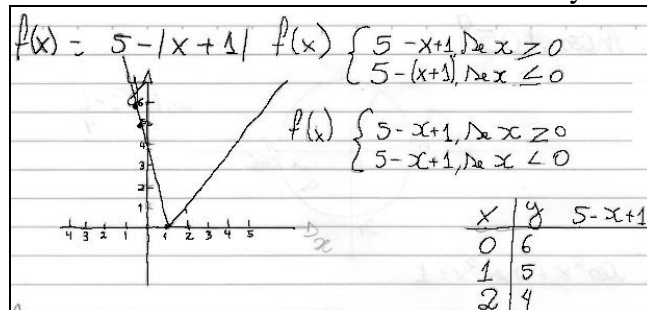 f(x) = 5 - |x + 1| f(x) { 5 - x+1, se x ≥ 0
5 - (x+1), se x ≤ 0
f(x) { 5 - x+1, se x ≥ 0
5 - x+1, se x < 0
6
4
3
2
1
4 3 2 1 1 2 3 4 5
x
x | y 5-x+1
0 | 6
1 | 5
2 | 4